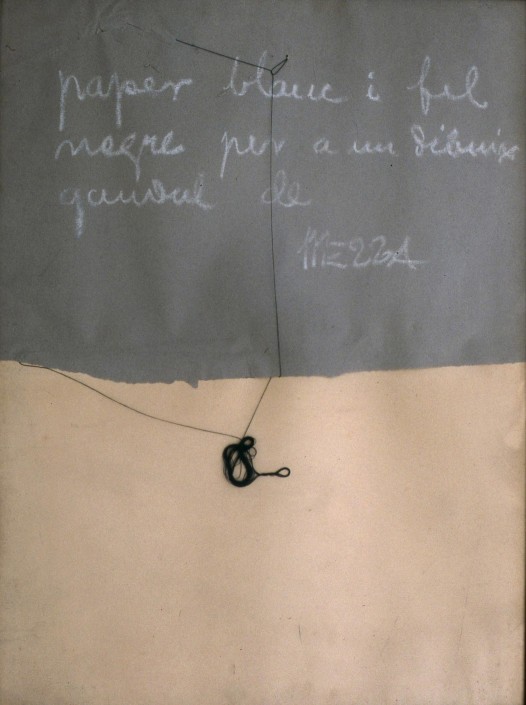 paper blanc i fil
negre per a un dibuix
gandul de
MEZZA